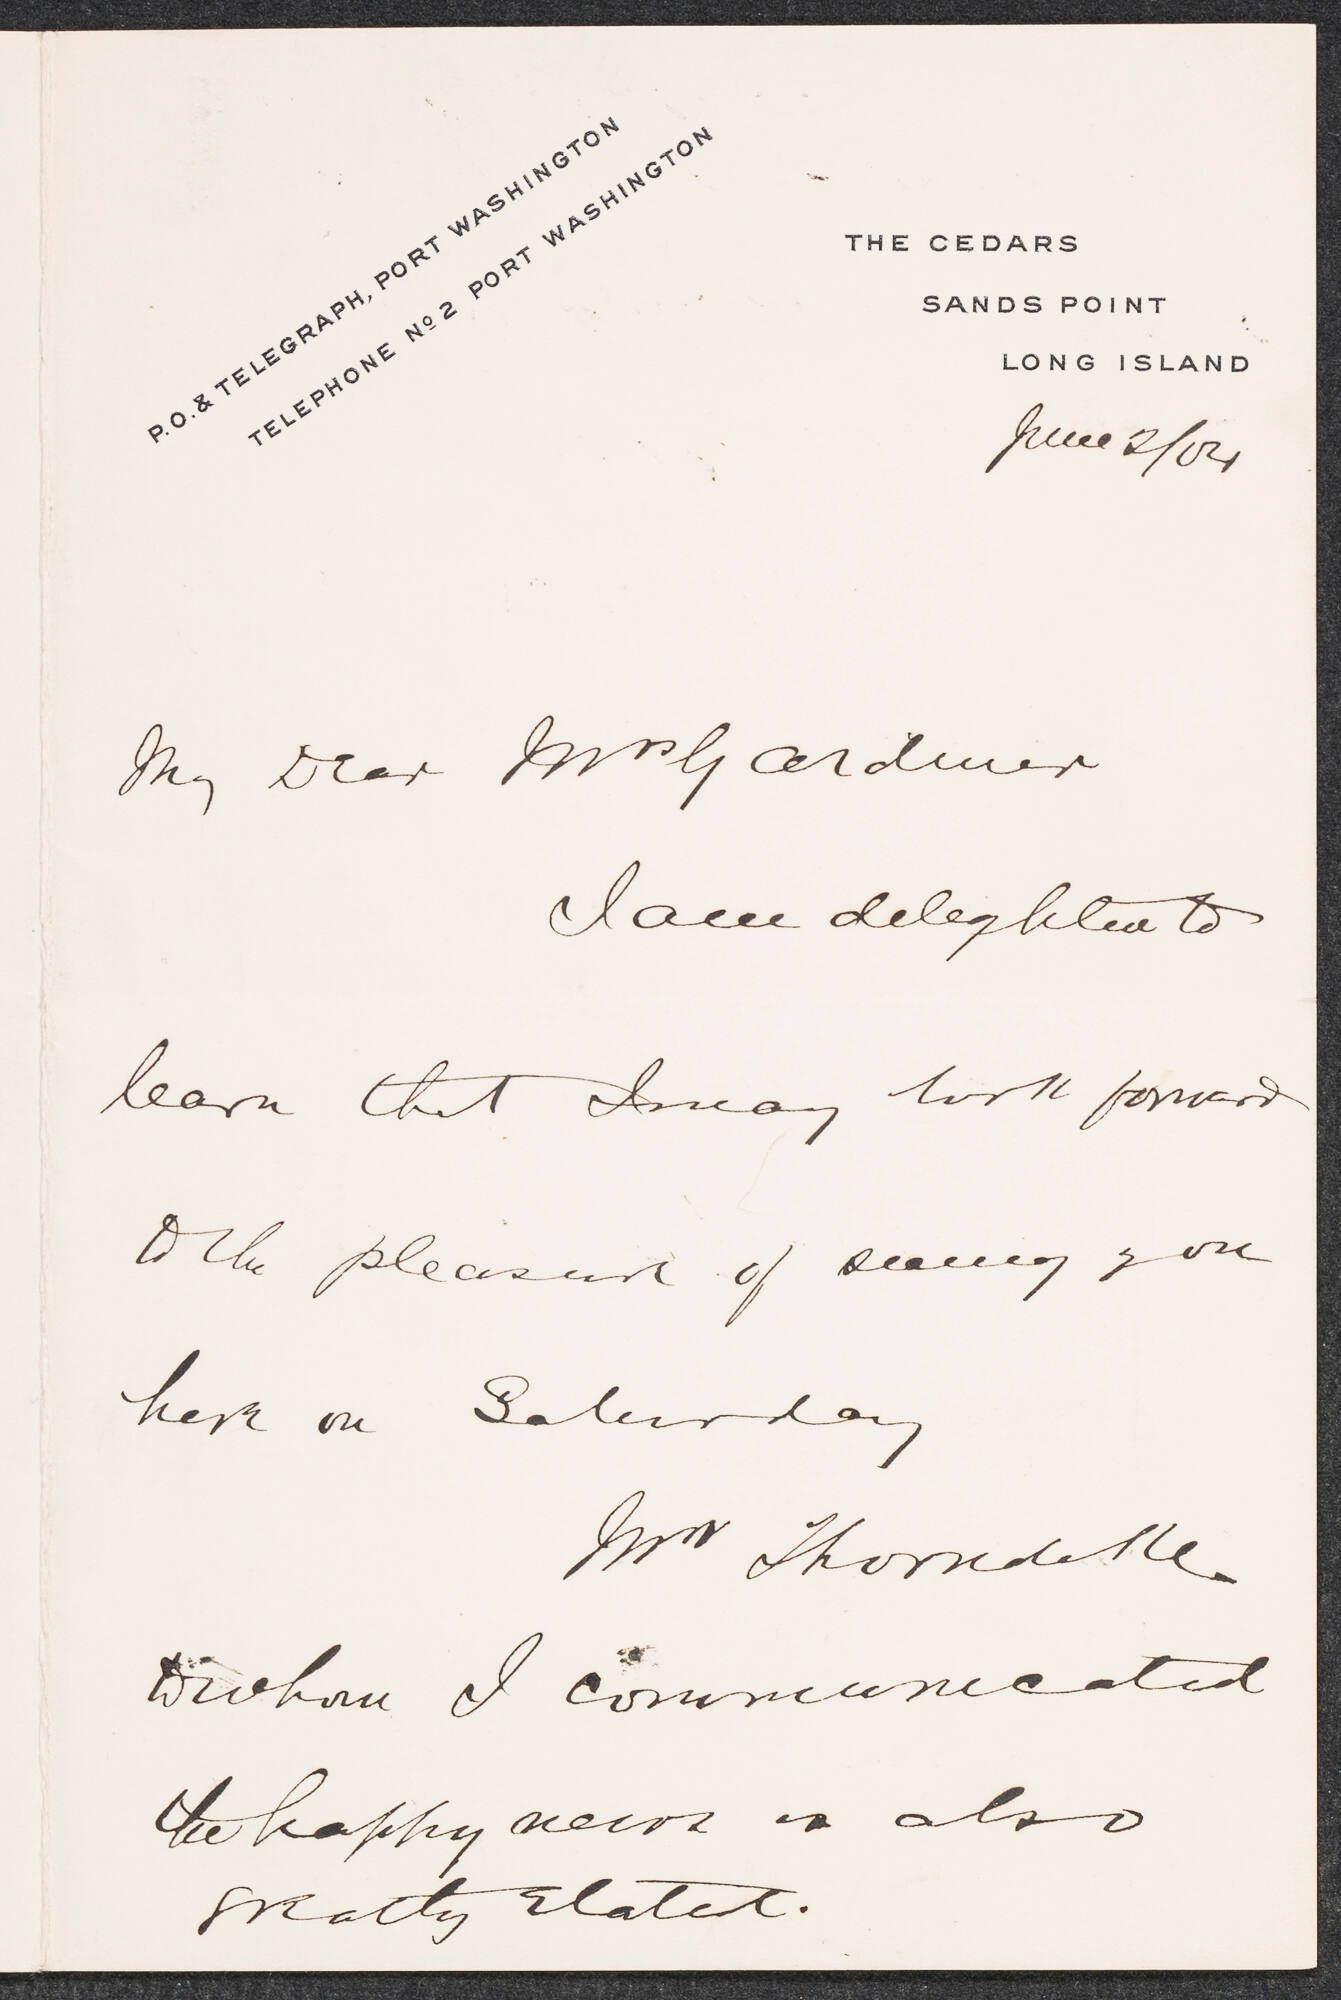 P.O. & TELEGRAPH, PORT WASHINGTON
TELEPHONE Nº 2 PORT WASHINGTON
THE CEDARS
SANDS POINT
LONG ISLAND
June 2/04
My Dear Mrs Gardner
I am delighted to
learn that I may look forward
to the pleasure of seeing you
here on Saturday
Mrs Thorndike
to whom I communicated
the happy news is also
greatly elated.